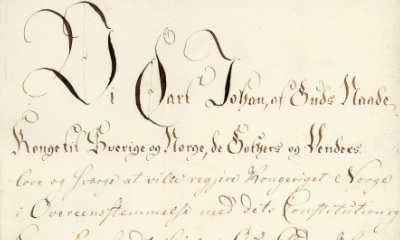 Vi Carl Johan, af Guds Naade,
Konge til Sverige og Norge, de Gothers og Venders
love og sværge at ville regjere Kongeriget Norge
i Overeensstemmelse med dets Constitution og